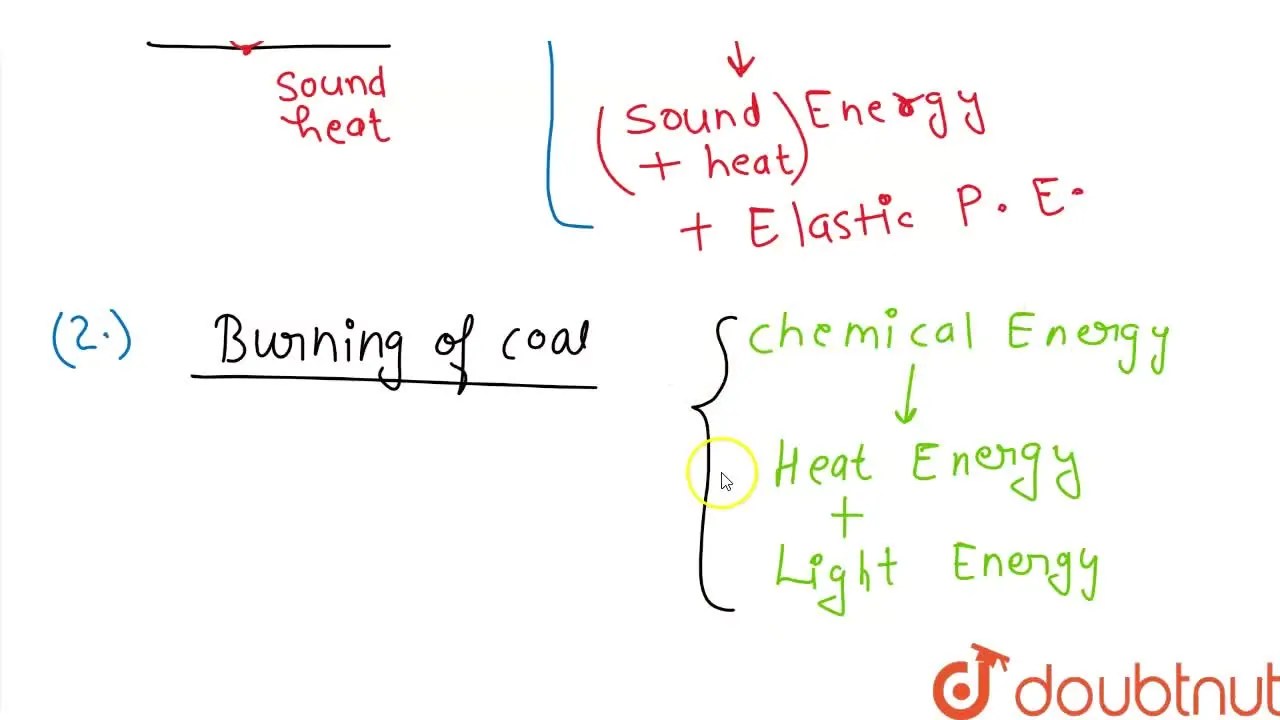 Sound
heat
(Sound
+ heat) Energy
+ Elastic P. E.
(2.) Burning of coal
Chemical Energy
Heat Energy
+
Light Energy
doubtnut